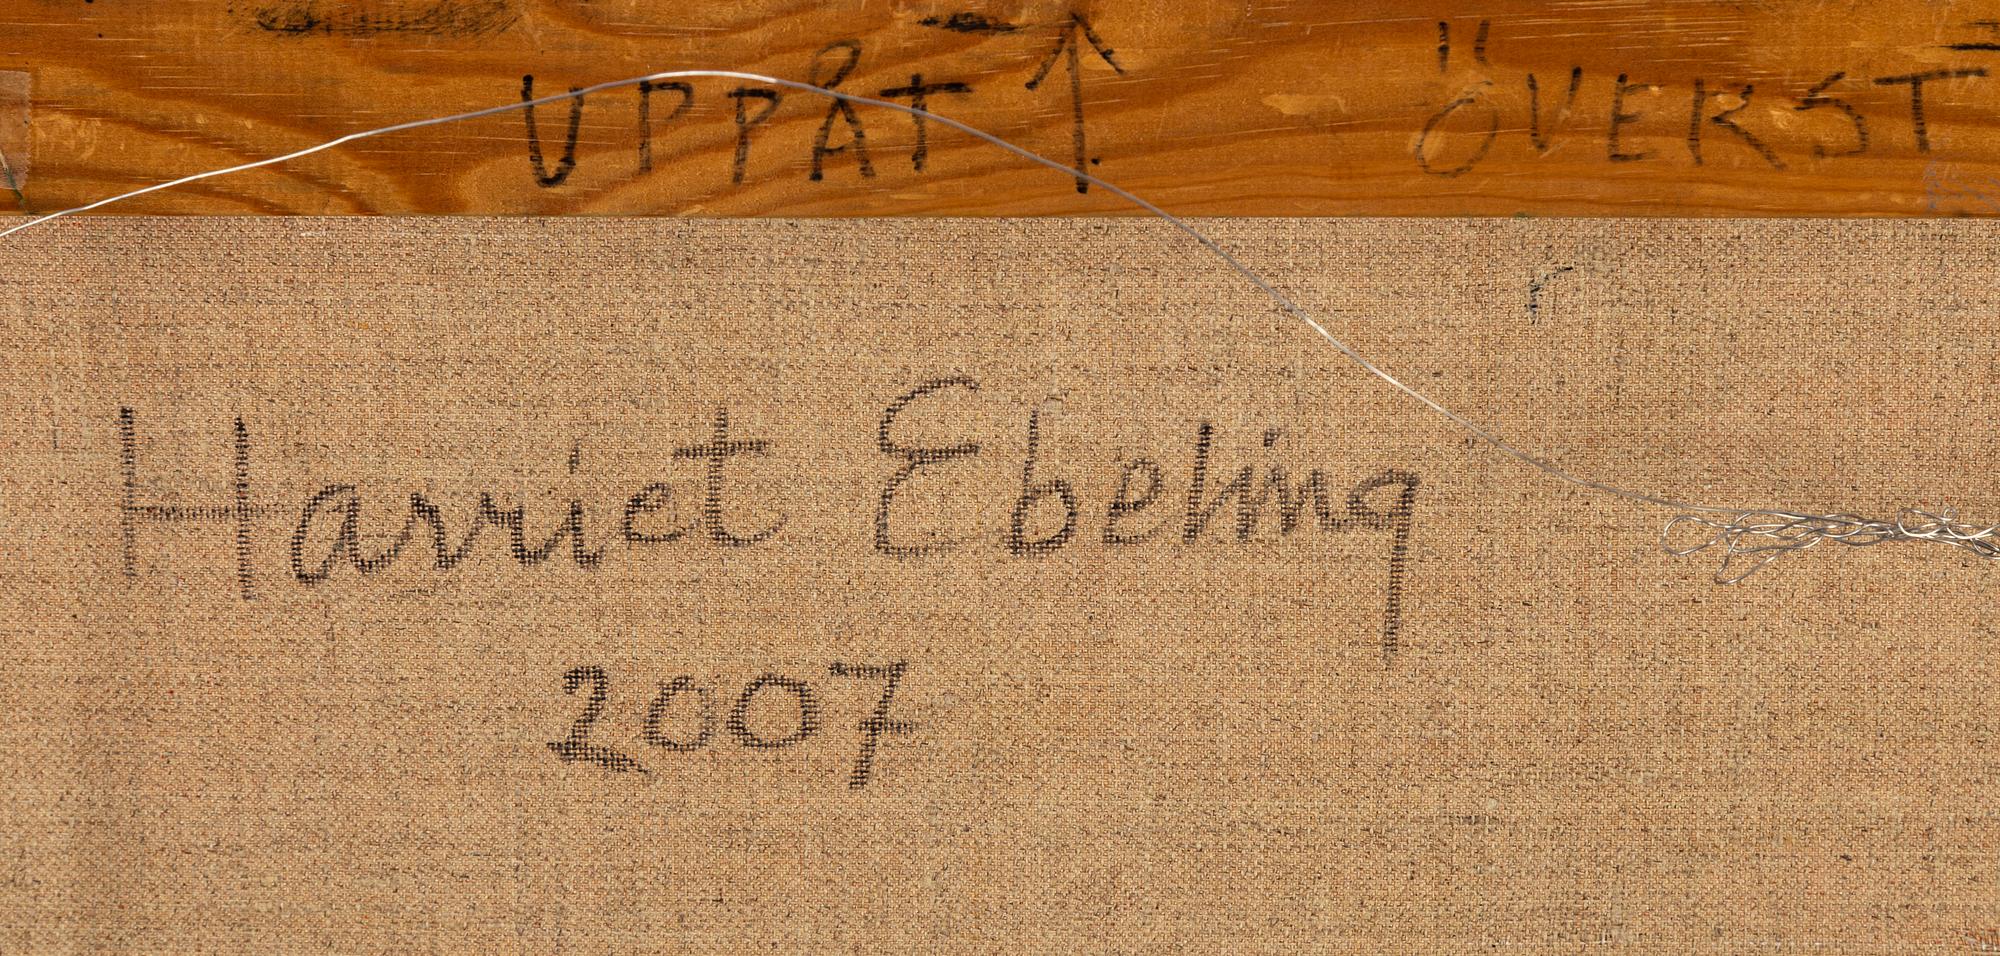 UPPÅT ↑ ÖVERST
Harriet Ebeling
2007